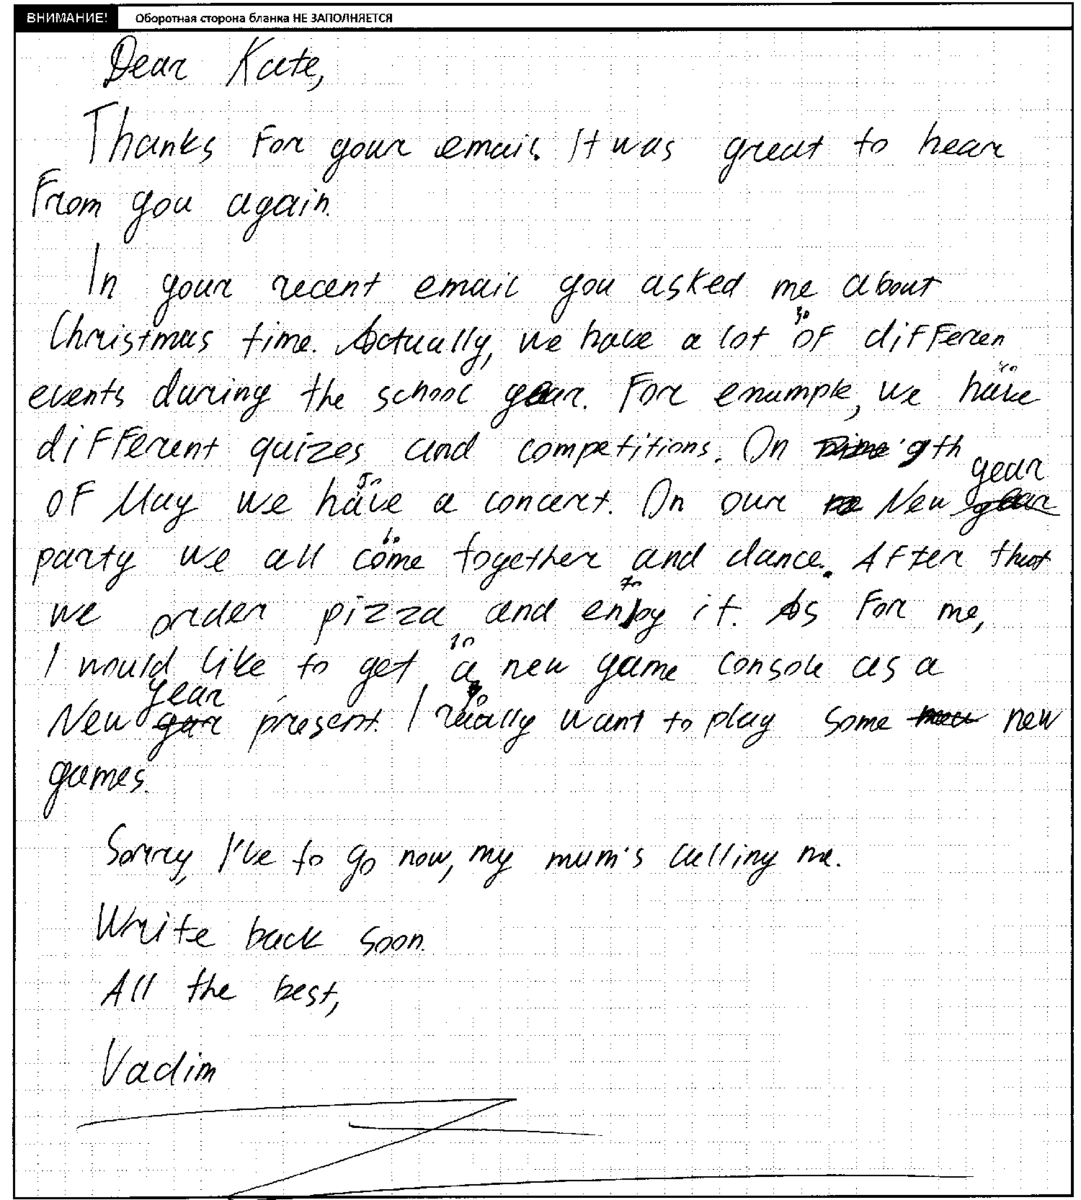 ВНИМАНИЕ! Оборотная сторона бланка НЕ ЗАПОЛНЯЕТСЯ
Dear Kate,
Thanks for your email. It was great to hear
from you again.
In your recent email you asked me about
Christmas time. Actually, we have a lot of differen
30
events during the school year. For enumple, we have
40
different quizes and competitions. On 9th
of May we have a concert. On our New year
50
party we all come together and dance. After that
60
we order pizza and enjoy it. As for me,
70
I would like to get a new game console as a
10
New year present. I really want to play some new
games.
Sorry, I've to go now, my mum's calling me.
Write back soon.
All the best,
Vadim